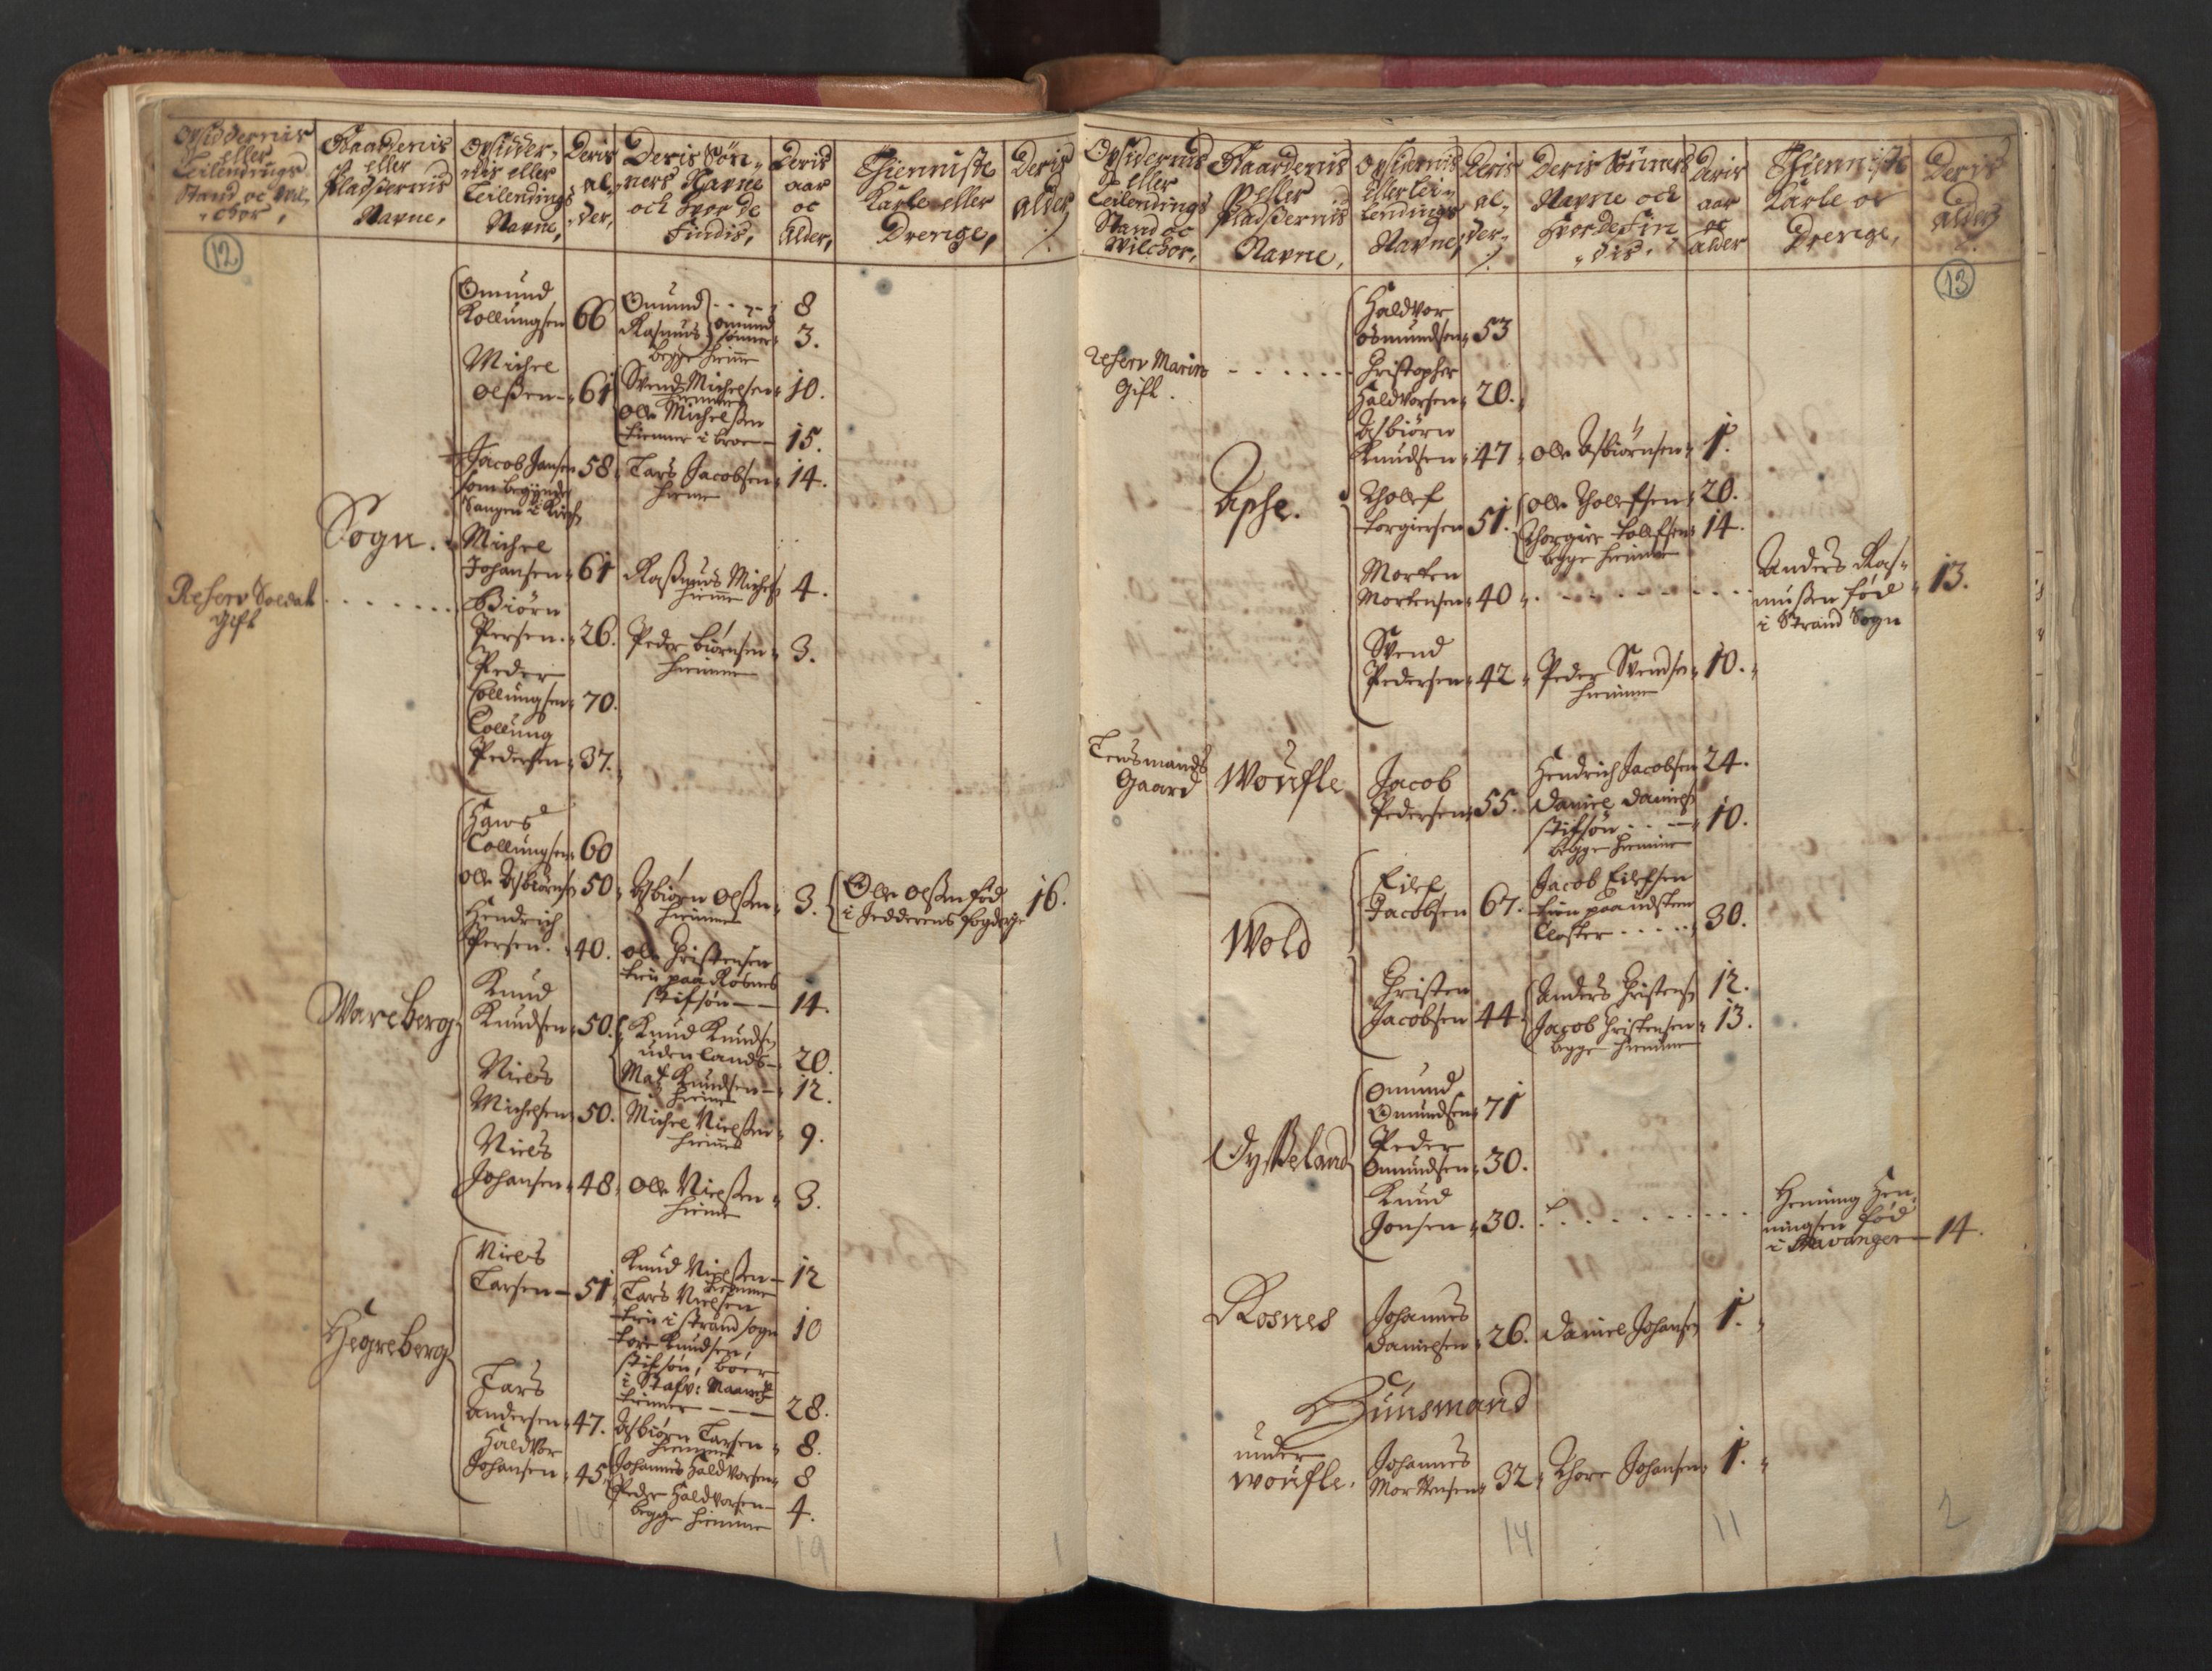 Opsidernis
eller
Leilendings
Stand oc Wil-
chor,
Gaardernis
eller
Pladsernis
Navne,
Opsider-
nis eller
Leilendings
Navne,
Deris
al-
der,
Deris Søn-
ners Navne
och hvor de
Findis,
Deris
aar
oc
Alder,
Thienniste
Karle eller
Drenge,
Deris
Alder
12
Omund
Kollungsen 66
Omund
Rasmus Omund
sønner
begge hiemme
8
3.
Michel
Olßen 61
Svend Michelsen
hiemme 10.
Olle Michelßen
tienner i Broe 15.
Jacob Jansen 58
som begynder
Sangen i Kirch
Lars Jacobsen
hieme 14.
Sogn.
Michel
Johansen 61
Raßmus Michels
hieme 4.
Reserv Soldat
Gift
Biørn
Persen 26.
Peder Biørnsen
hiemme 3.
Peder
Collungsen 70.
Collung
Pedersen 37.
Wareberg
Hans
Collungsen 60
Olle Asbiørns 50
Asbiørn Olßen
hiemme 3.
Olle Olßen fød
i Jedderens fogderje 16.
Hendrich
Persen 40.
Olle Christensen
tien paa Rosnes
stifsøn 14.
Knud
Knudsen 50.
Knud Knuds
udenlands 20.
Mas Knudsen
hieme 12.
Niels
Michelsen 50.
Michel Nielßen
hieme 9.
Niels
Johansen 48
Olle Nielßen
hieme 3.
Hegreberg
Niels
Larsen 51
Knud Nielßen
hiemme 12
Lars Nielsen
tien i Strand sogn 10
Tore Knudsen,
stifsøn, boer
i Stafv:
28.
Lars
Andersen 47.
Asbiørn Larsen
hiemme 8.
Haldvor
Johansen 45
Johannes Haldvorsen 8
Peder Haldvorsen 4.
begge hiemme
16
19
1
Opsidernis
eller
Leilendings
Stand oc
Wilchor,
Gaardernis
eller
Pladsernis
Navne,
Opsidernis
eller Lei-
lendings
Navne,
Deris
al-
der
Deris Sønners
Navne och
hvor de Fin-
dis.
Deris
aar
oc
alder
Thienniste
Karle oc
Drenge,
Deris
Alder
13
Haldvor
Osmundsen 53
Reserv Marin
Gift.
Christopher
Haldvorsen 20.
Asbiørn
Knudsen 47
Olle Asbiørnsen 1.
Apse.
Tholef
Torgiersen 51.
Olle Tholefsen 20.
Thorgier Tolefsen 14.
begge hiemme
Morten
Mortensen 40
Anders Ras-
mußen fød
i Strand Sogn 13.
Svend
Pedersen 42
Peder Svendsen
hiemme 10.
Lensmands
Gaard
Woufle
Jacob
Pedersen 55.
Hendrich Jacobsen 24.
Daniel Daniels
stifsøn 10.
begge hiemme
Wold
Eilef
Jacobsen 67.
Jacob Eilefsen
tien paa Udsten
Closter 30.
Christen
Jacobsen 44
Anders Christens 12.
Jacob Christensen 13.
begge hiemme
Dysseland
Omund
Omundsen 71
Peder
Omundsen 30.
Knud
Jonsen 30.
Henning Hen-
ningsen fød
i Stavanger 14.
Rosnes
Johannes
Danielsen 26.
Daniel Johans 1.
Huusmand
under
Woufle.
Johannes
Mortensen 32
Thore Johansen 1.
14
11
2